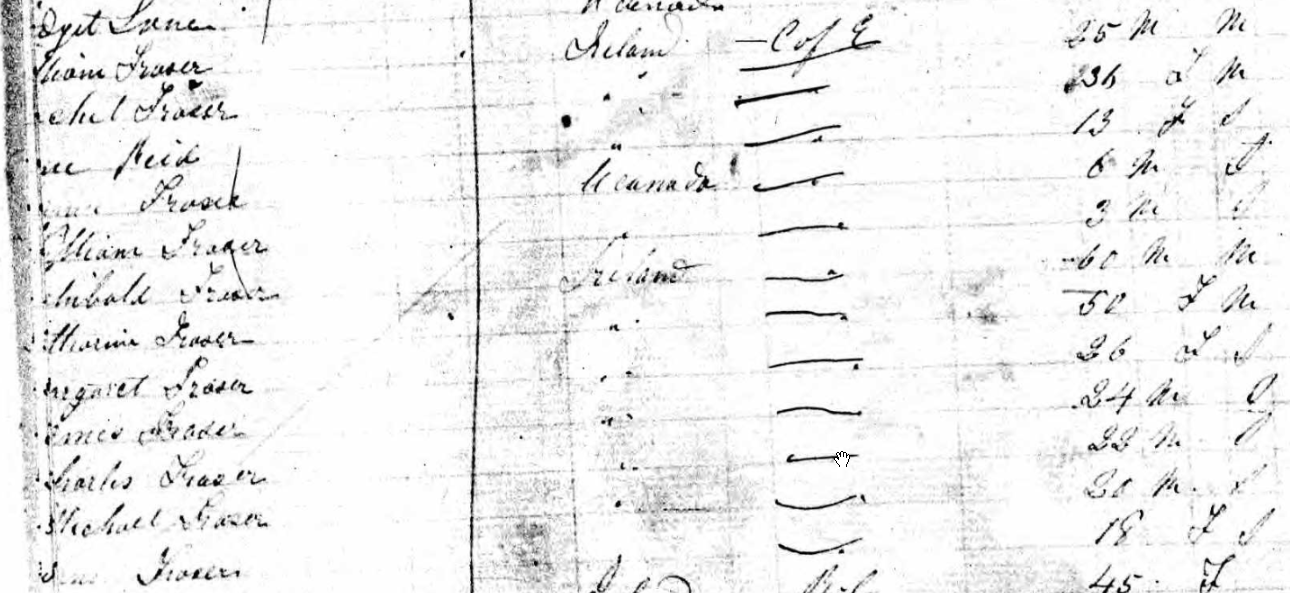 dget Lane U Canada
lliam Fraser Ireland C of E 25 M M
chel Fraser " 36 F M
ne Reid " 13 F S
Fraser U Canada 6 M S
William Fraser " 3 M S
chibald Fraser Ireland 60 M M
tharine Fraser " 50 F M
argaret Fraser " 26 F S
ames Fraser " 24 M S
Charles Fraser " 22 M S
Michael Fraser " 20 M S
Fraser 18 F S
45 F